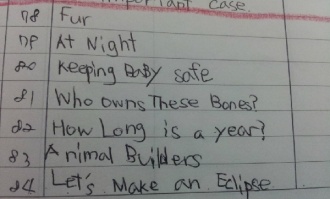 Important case.
78 Fur
79 At Night
80 Keeping BaBy safe
81 Who owns These Bones?
82 How Long is a year?
83 Animal Builders
84 Let's Make an Eclipse